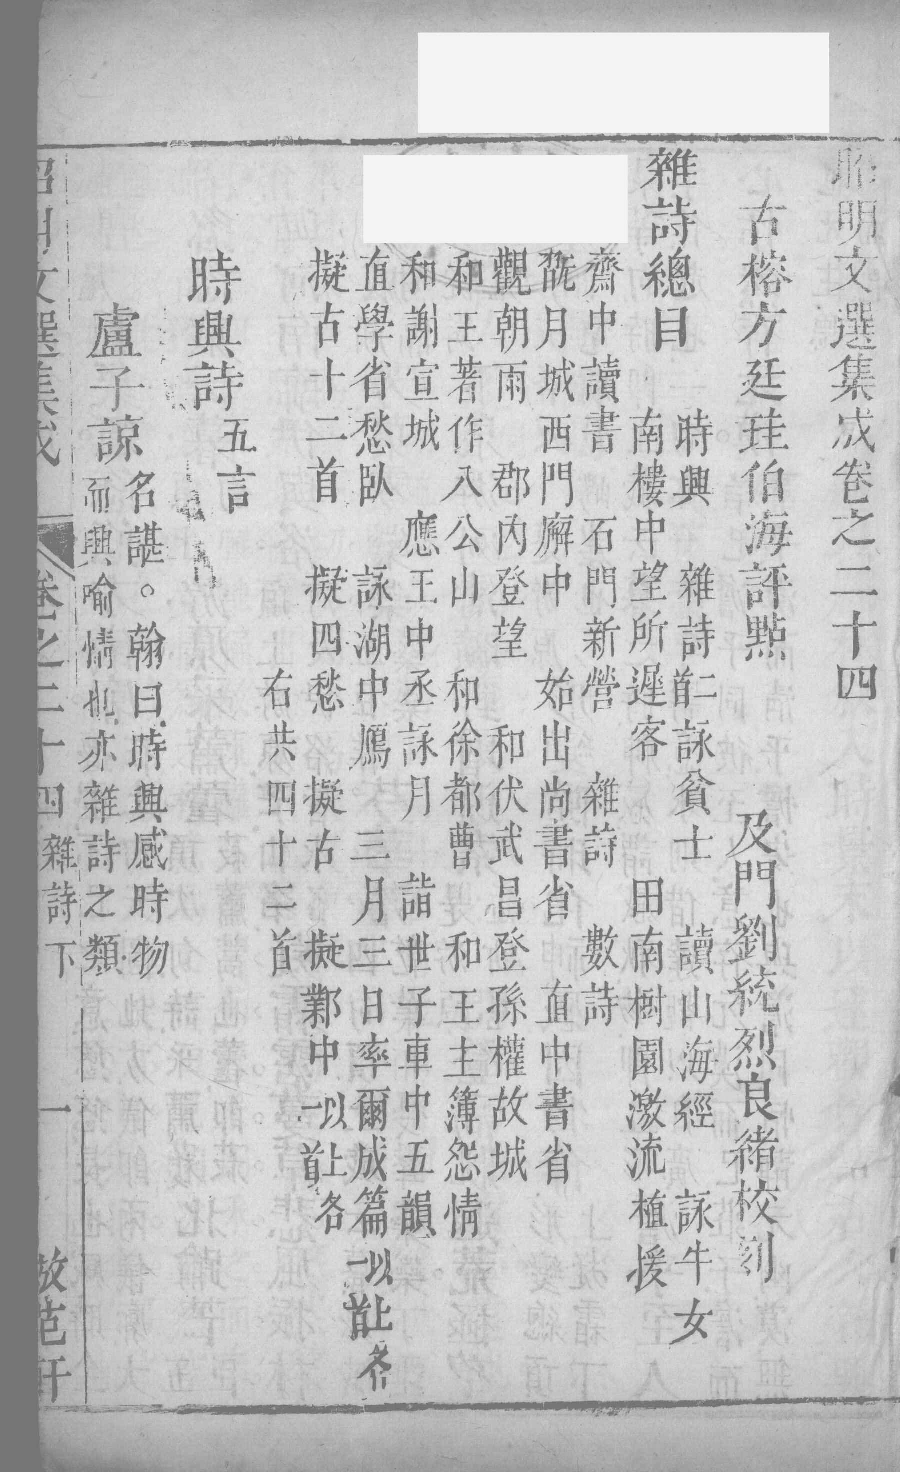 昭明文選集成卷之二十四
古榕方廷珪伯海評點　及門劉統烈良緒校刻
雜詩總目
時興　雜詩二首　詠貧士　讀山海經　詠牛女
南樓中望所遲客　田南樹園激流植援
齋中讀書　石門新營　雜詩　數詩
翫月城西門廨中　始出尚書省　直中書省
觀朝雨　郡內登望　和伏武昌登孫權故城
和王著作八公山　和徐都曹　和王主簿怨情
和謝宣城　應王中丞詠月　諧世子車中五韻
直學省愁臥　詠湖中鴈　三月三日率爾成篇以上各一首
擬古十二首　擬四愁　擬古　擬鄴中以上各一首
右共四十二首
時興詩五言
盧子諒名諶。翰曰時興感時物
而興喻情也亦雜詩之類
昭明文選集成　卷之二十四　雜詩下　一　倣范軒